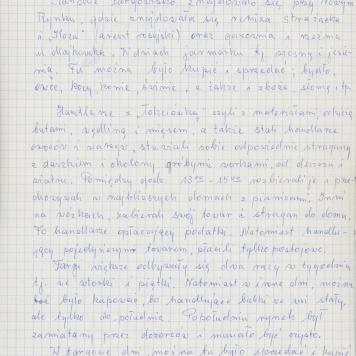 targowisko znajdowało się przy nowym
Rynku, gdzie znajdowała się remiza strażacka
i "Koza" (areszt miejski) oraz garcarnia i
ul. Majkowska. W dniach jarmarku tj. wiosną i jesie-
nią. Tu można było kupić i sprzedać; bydło,
owce, kozy, konie, świnie, a także i zboże, słomę i tp.
Handlarze z "Łokciówką" czyli z materiałami, odzieżą
butami, wędliną i mięsem, a także stali handlarze
owoców i warzyw, stawiali sobie odpowiednie stragany
z daszkiem i osłony grubymi workami, od deszczu i
wiatru. Pomiędzy godz. 13 00 - 15 00 rozbierali je i prze-
chowywali w najbliższych domach z piwnicami. Inni
na wózkach, zabierali swój towar i stragan do domu.
To handlarze opłacający podatki. Natomiast handlu-
jący pojedynczym towarem, płacili tylko postojowe.
Targi większe odbywały się dwa razy w tygodniu
tj. we wtorki i piątki. Natomiast w inne dni, można
też było kupować, bo handlujące babki se wi stały,
ale tylko do południa. Popołudniu rynek był
zamiatany przez dozorców i musiało być czysto.
W targowe dni, można tu było sprzedać i kupić